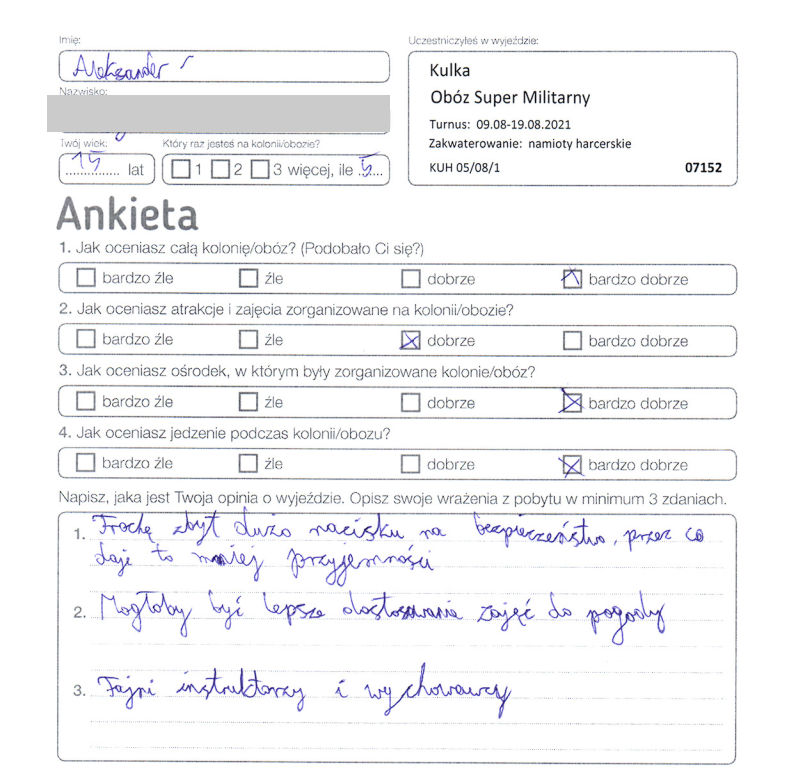 Imię:
Aleksander
Uczestniczyłeś w wyjeździe:
Kulka
Obóz Super Militarny
Turnus: 09.08-19.08.2021
Zakwaterowanie: namioty harcerskie
KUH 05/08/1 07152
Nazwisko:
Twój wiek:
15 lat
Który raz jesteś na kolonii/obozie?
1 2 3 więcej, ile 5
Ankieta
1. Jak oceniasz całą kolonię/obóz? (Podobało Ci się?)
bardzo źle źle dobrze bardzo dobrze
2. Jak oceniasz atrakcje i zajęcia zorganizowane na kolonii/obozie?
bardzo źle źle dobrze bardzo dobrze
3. Jak oceniasz ośrodek, w którym były zorganizowane kolonie/obóz?
bardzo źle źle dobrze bardzo dobrze
4. Jak oceniasz jedzenie podczas kolonii/obozu?
bardzo źle źle dobrze bardzo dobrze
Napisz, jaka jest Twoja opinia o wyjeździe. Opisz swoje wrażenia z pobytu w minimum 3 zdaniach.
1. Trochę zbyt dużo nacisku na bezpieczeństwo, przez co
daje to mniej przyjemności
2. Mogłoby być lepsze dostosowanie zajęć do pogody
3. Fajni instruktorzy i wychowawcy